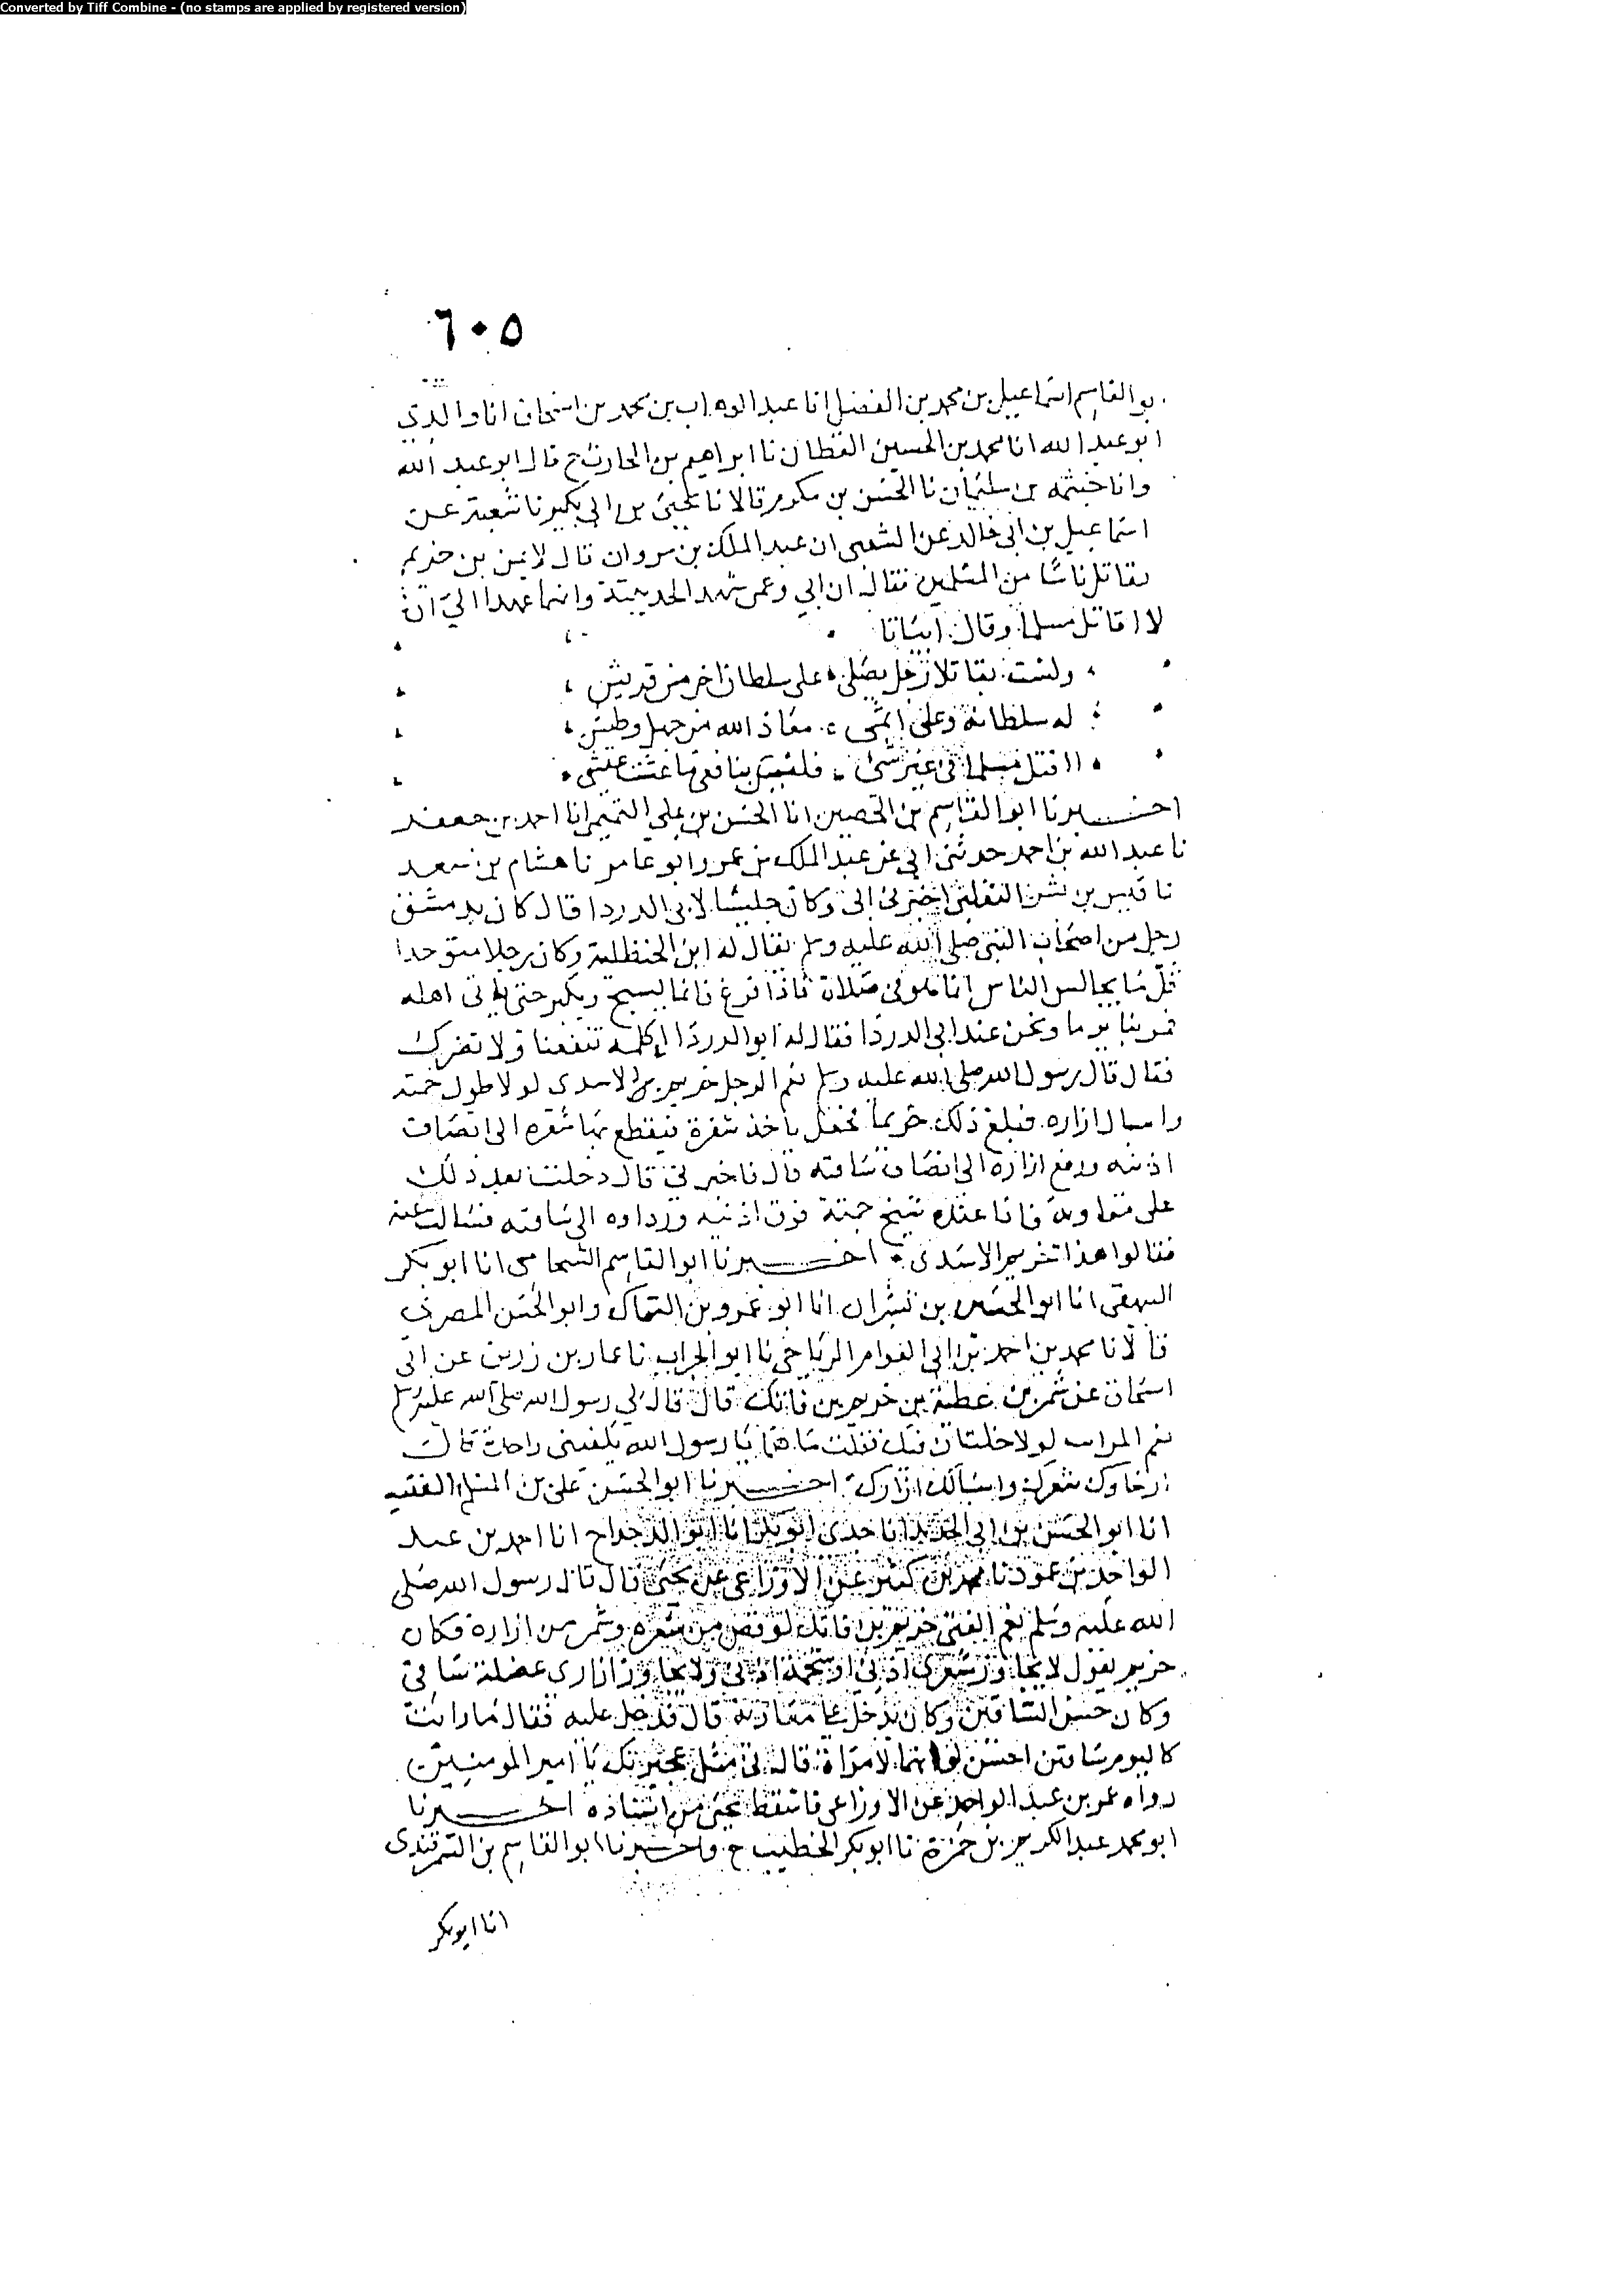 Converted by Tiff Combine - (no stamps are applied by registered version)
٦٠٥
بو القاسم اسماعيل بن محمد بن الفضل انا عبد الوهاب بن محمد بن اسحاق انا والدي
ابو عبد الله انا محمد بن الحسين القطان نا ابراهيم بن الحارث ح قال ابو عبد الله
وانا خيثمه بن سليمان نا الحسن بن مكرم قالا نا يحيى بن ابي بكير نا شعبة عن
اسماعيل بن ابي خالد عن الشعبي ان عبد الملك بن مروان قال لايمن بن خريم
تقاتل ناسًا من المسلمين فقال ان ابي وعمي شهد الحديبية وانهما عهدا الي ان
لا اقاتل مسلما وقال ابياتا
ولست بقاتلا رجل يصلي على سلطان اخر من قريش
له سلطانه وعلي اثمي معاذ الله من جهل وطيش
ااقتل مسلما في غير شي فليس بنافعي ما عشت عيشي
اخبرنا ابو القاسم بن الحصين انا الحسن بن علي التميمي انا احمد بن جعفر
نا عبد الله بن احمد حدثني ابي عن عبد الملك بن عمرو ابو عامر نا هشام بن سعد
نا قيس بن بشر التغلبي اخبرني ابي وكان جليسًا لابي الدردا قال كان بدمشق
رجل من اصحاب النبي صلى الله عليه وسلم يقال له ابن الحنظلية وكان رجلا متوحدا
قلّ ما يجالس الناس انما هو في صلاة فاذا فرغ فانما يسبح ويكبر حتى ياتي اهله
فمر بنا يوما ونحن عند ابي الدردا فقال له ابو الدردا كلمة تنفعنا ولا تضرك
فقال قال رسول الله صلى الله عليه وسلم نعم الرجل خريم الاسدي لولا طول جمته
واسبال ازاره فبلغ ذلك خريما فجعل ياخذ شفرة فيقطع بها شعره الى انصاف
اذنيه ورفع ازاره الى انصاف ساقيه قال فاخبرني قال دخلت بعد ذلك
على معاوية فاذا عنده شيخ جمته فوق اذنيه ورداوه الى ساقيه فسالت عنه
فقالوا هذا خريم الاسدي اخبرنا ابو القاسم الشحامي انا ابو بكر
البيهقي انا ابو الحسين بن بشران انا ابو عمرو بن السماك وابو الحسن المصري
قالا نا محمد بن احمد بن ابي العوام الرياحي نا ابو الجواب نا عمار بن زريق عن ابي
اسحاق عن شمر بن عطية بن خريم بن فاتك قال قال لي رسول الله صلى الله عليه وسلم
نعم المر انت لولا خلتان فيك فقلت ما هما يا رسول الله يكفيني واحدة قال
ارخاوك شعرك واسبالك ازارك اخبرنا ابو الحسن علي بن المسلم الفقيه
انا ابو الحسن بن ابي الحديد انا جدي ابو بكر انا ابو الدحداح انا احمد بن عبد
الواحد بن عبود نا محمد بن كثير عن الاوزاعي عن يحيى قال قال رسول الله صلى
الله عليه وسلم نعم الفتى خريم بن فاتك لو قص من شعره وشمر من ازاره فكان
خريم يقول لا يجاوز شعري اذني او شحمة اذني ولا يجاوز ازاري عضلة ساقي
وكان حسن الساقين وكان يدخل على معاوية قال فدخل عليه فقال ما رايت
كاليوم ساقين احسن لو انهما لامراة قال في مثل عجيزتك يا امير المومنين
رواه عمر بن عبد الواحد عن الاوزاعي فاسقط يحيى من اسناده اخبرنا
ابو محمد عبد الكريم بن حمزة نا ابو بكر الخطيب ح واخبرنا ابو القاسم بن السمرقندي
انا ابو بكر